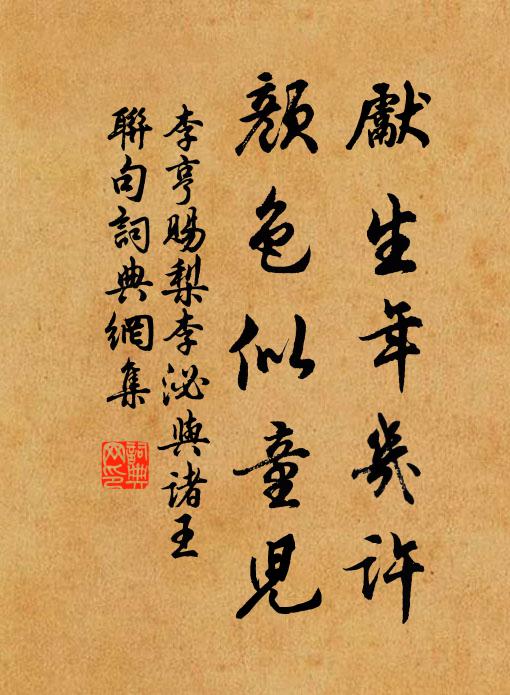 獻生年幾許
顏色似童兒
李亨賜梨李泌與諸王
聯句詞典網集
詞典
网印